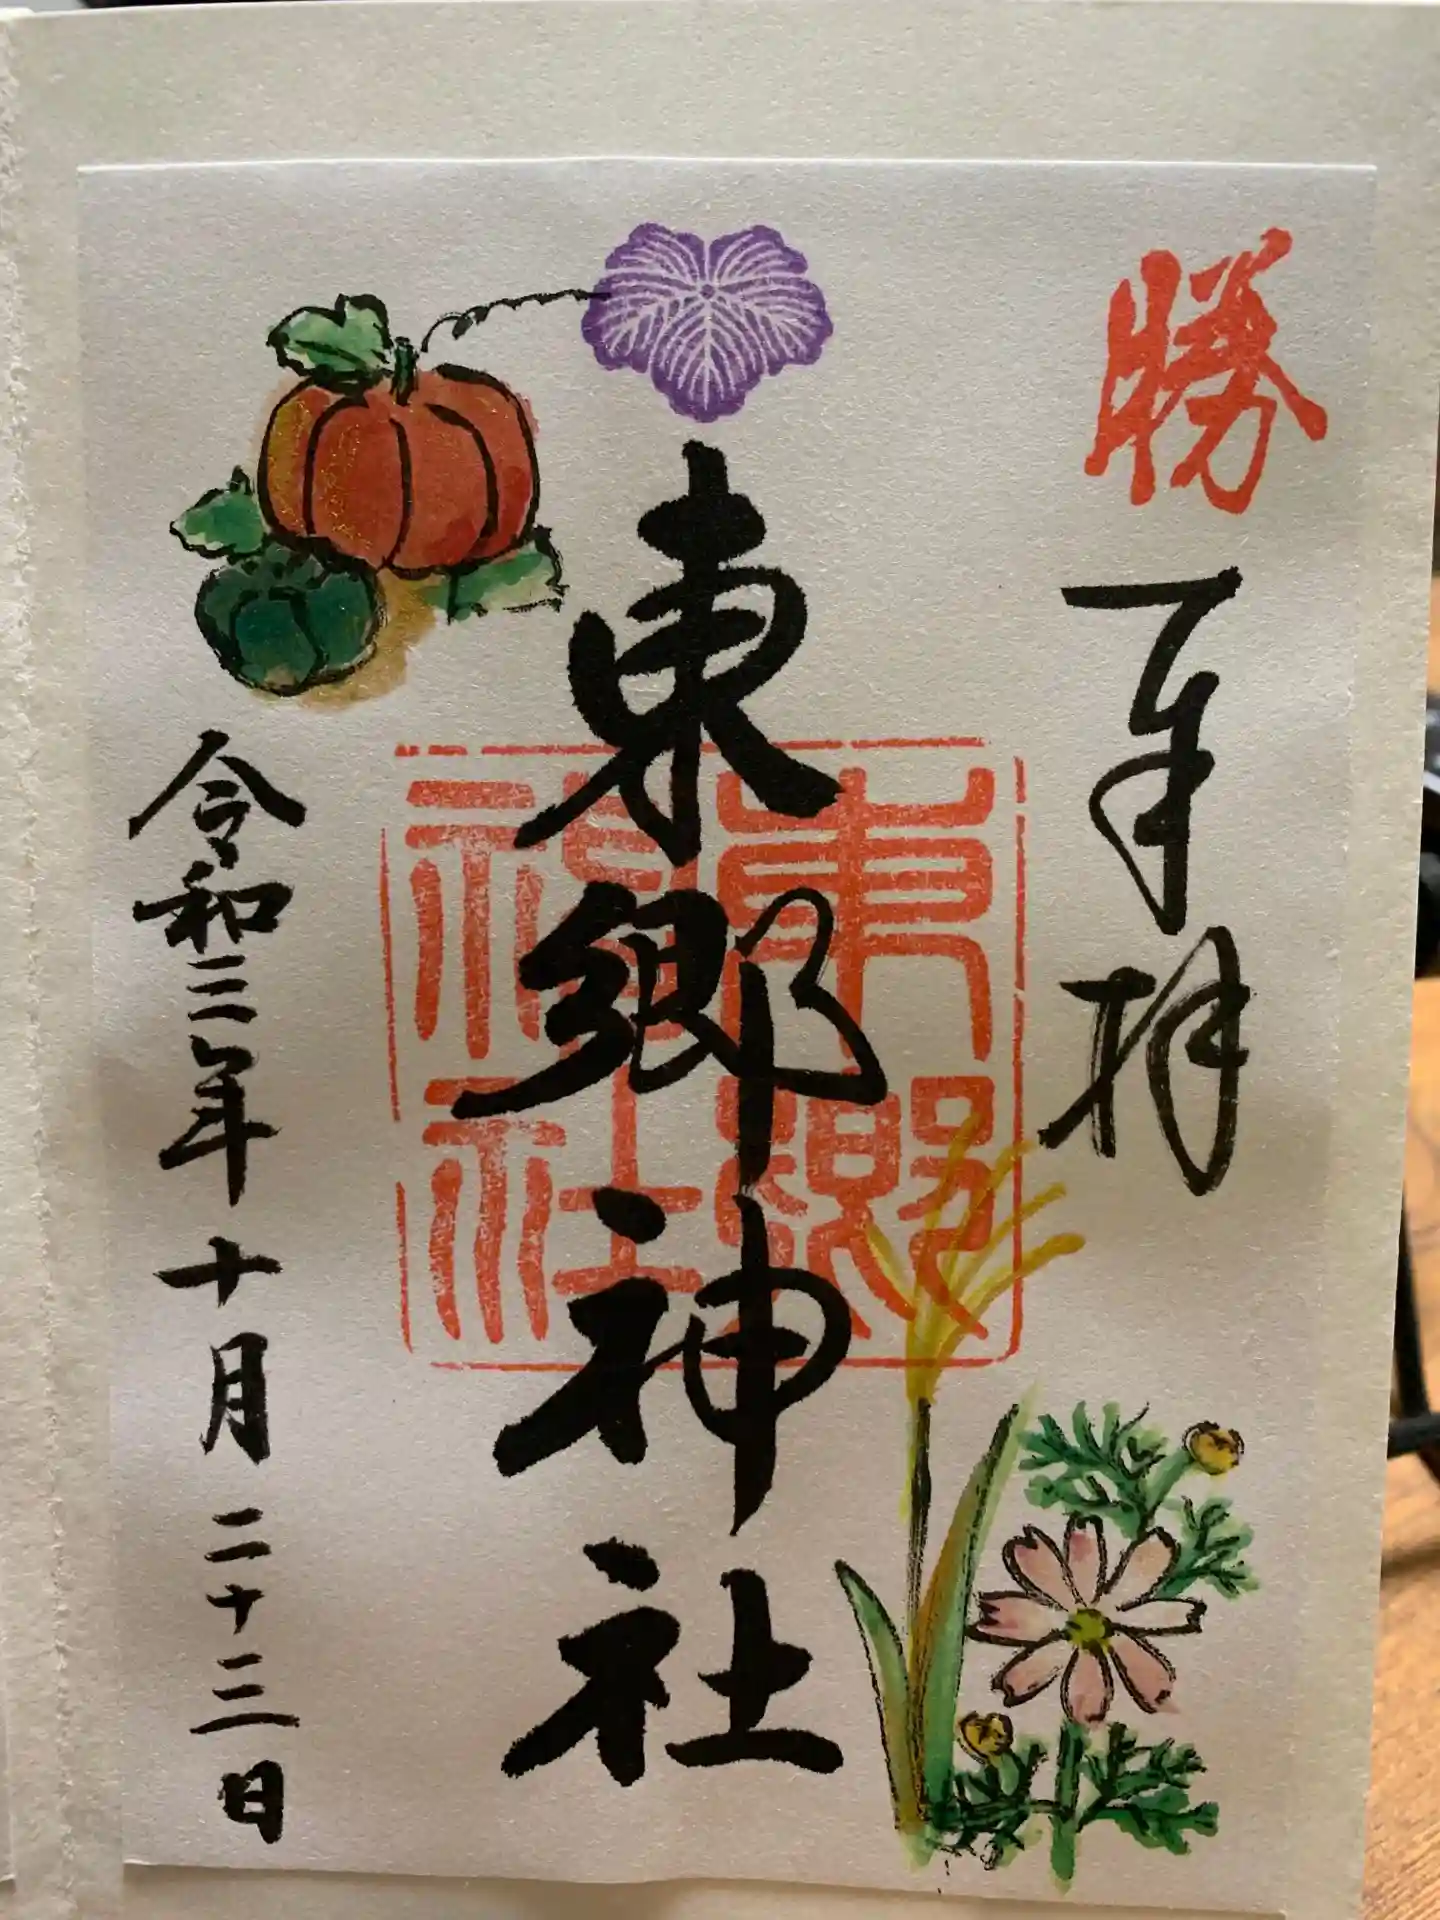 勝
奉拝
東郷神社
東郷神社
令和三年十月二十三日